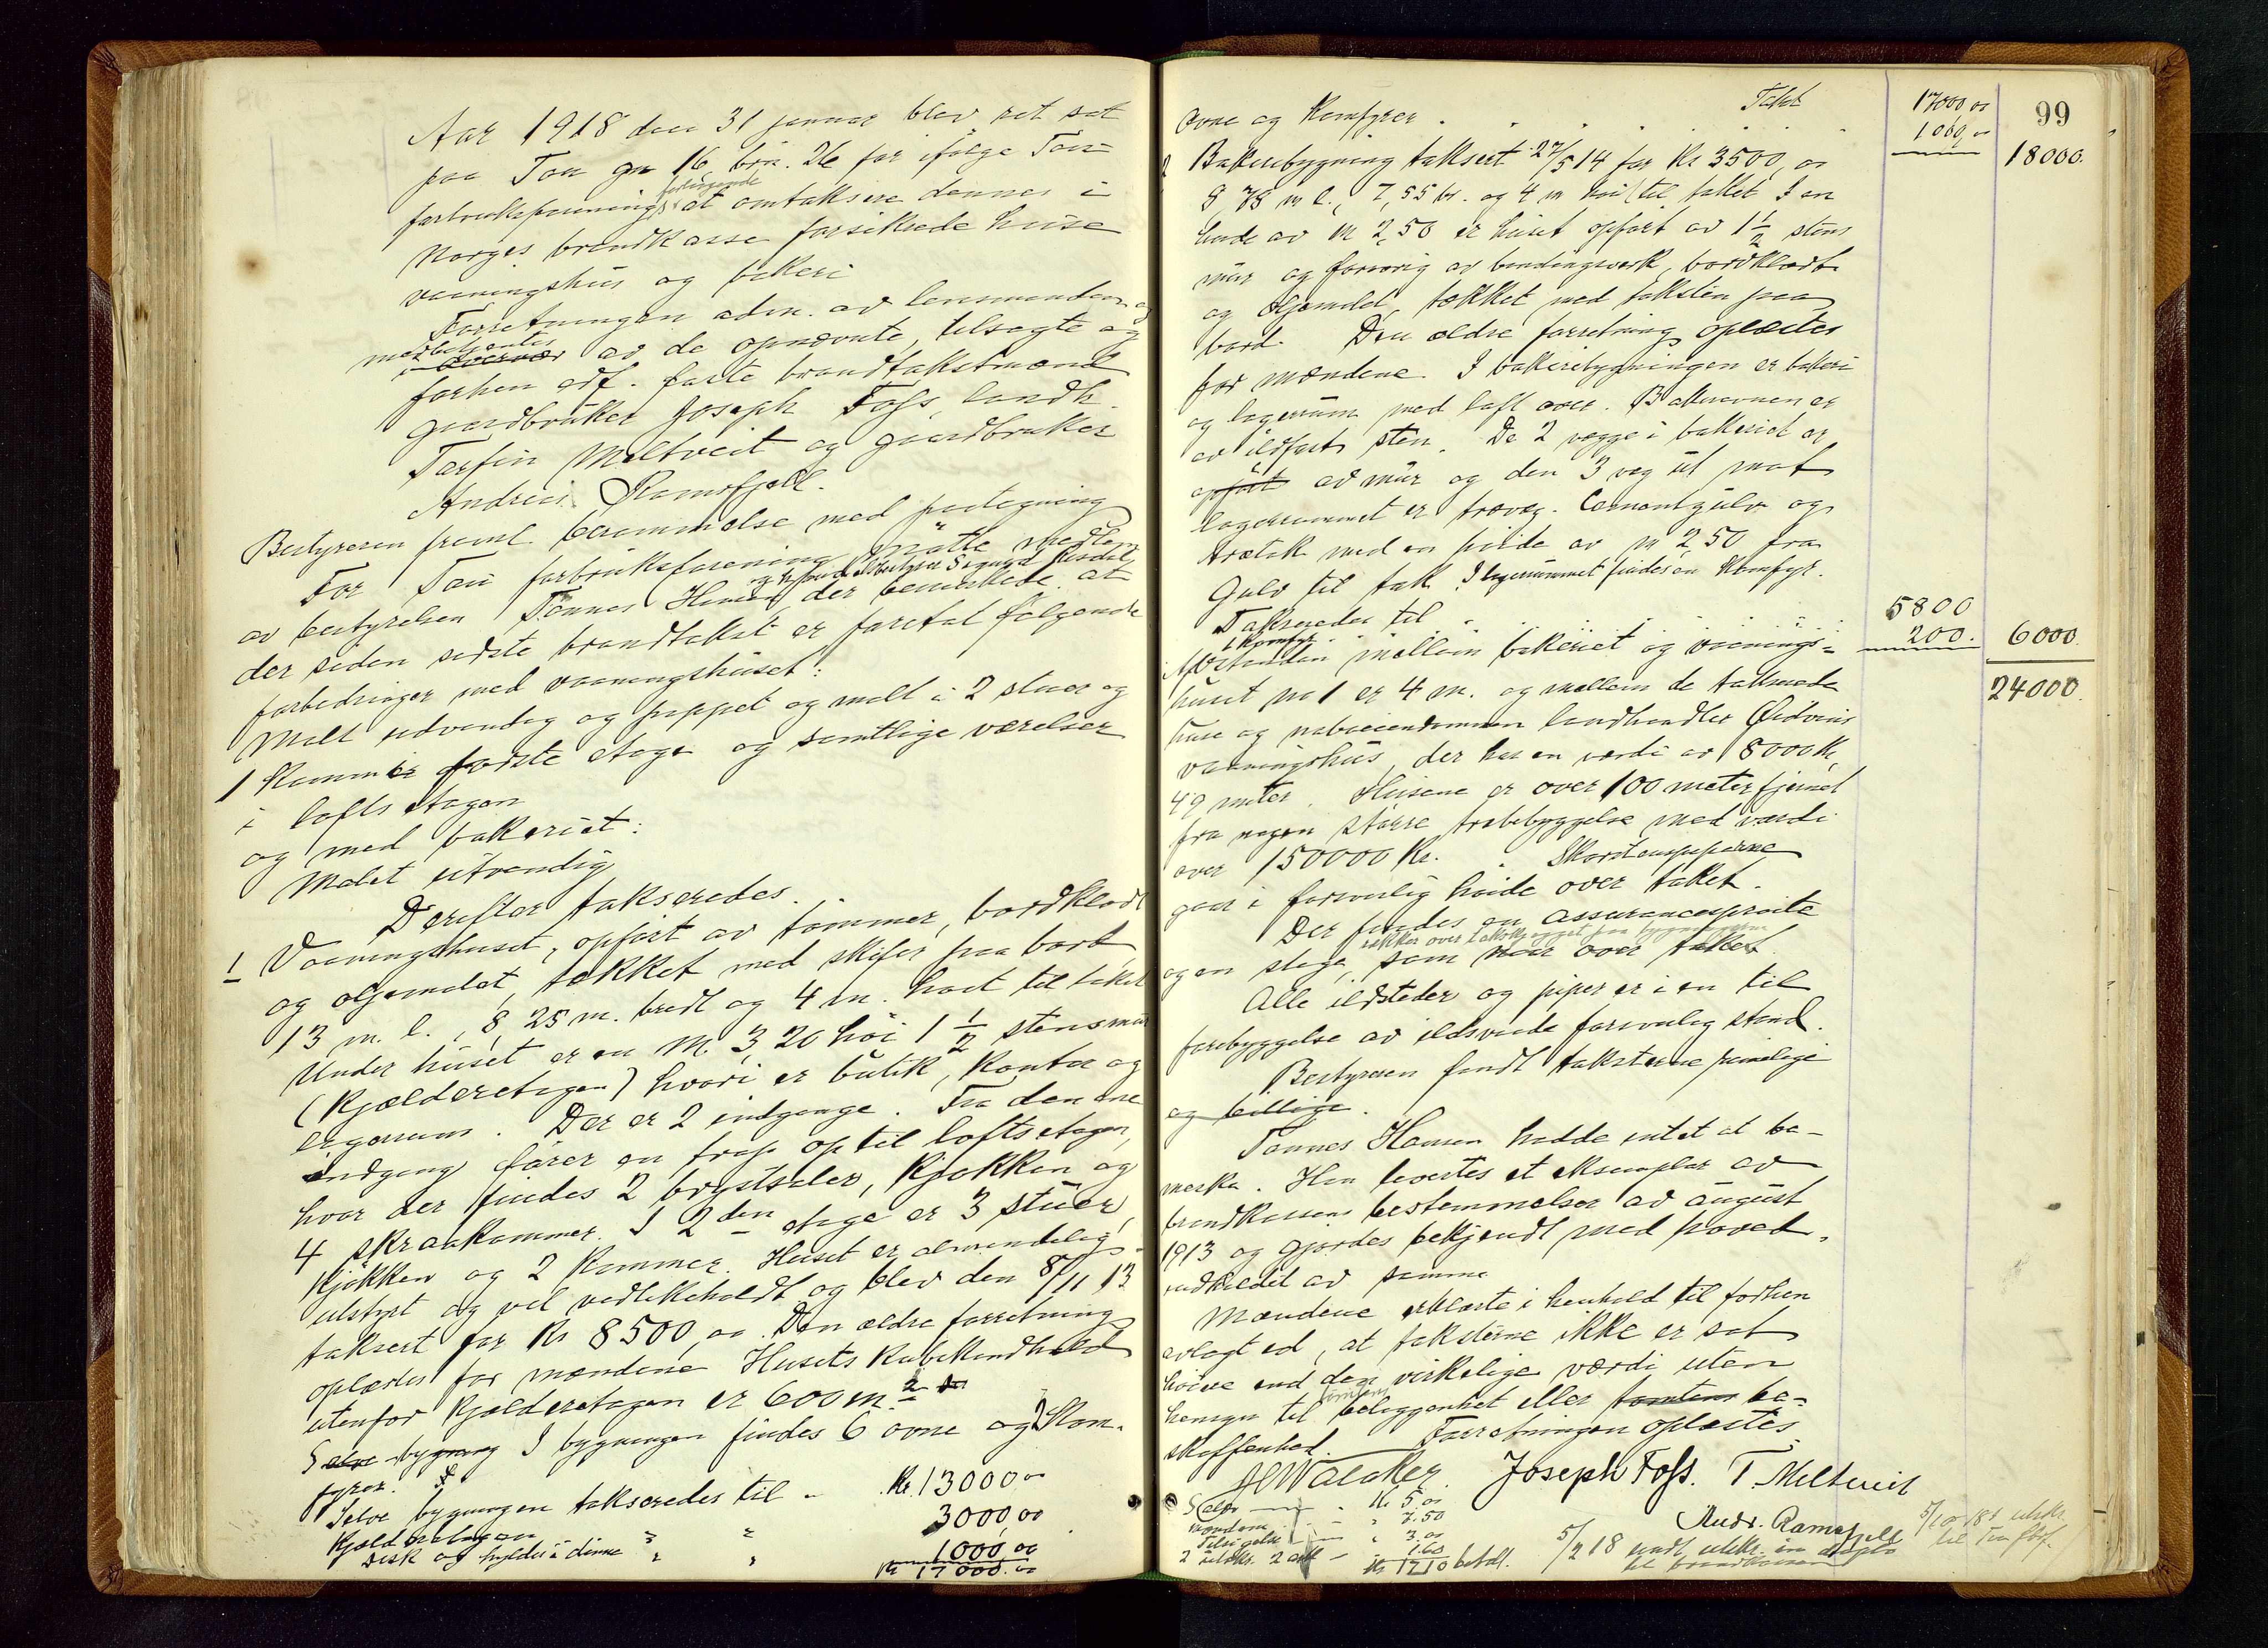 Aar 1918 den 31 januar blev ret sat
paa Tou gn 16 brn. 26 for ifølge Tou
forbruksforenings forlangende at omtaksere dennes i
Norges brandkasse forsikrede huse
vaaningshus og bakeri
Forretningen adm. av lensmanden og
medbetjentes av de opnævnte, tilsagte og
forhen edf. faste brandtakstmænd
gaardbruker Joseph Foss, landh.
Torfin Meltveit og gaardbruker
Andreas Ramsfjell.
Bestyreren freml. berammelse med paategning
For Tou forbruksforening møtte medlem
av bestyrelsen Tønnes Hansen og der bemerkede at
der siden sidste brandtakst er foretat følgende
forbedringer med vaaningshuset:
Malt utvendig og pappet og malt i 2 stuer og
1 kammer i første etage og samtlige værelser
i loftsetagen
og med bakeriet:
Malet utvendig
Derefter takseredes.
1 Vaaningshuset, opført av tømmer, bordklædt
og oljemalet, tækket med skifer paa bord
13 m. l., 8,25 m. bredt og 4 m. høit til taket
Under huset er en M. 3,20 høi 1 1/2 stensmur
(Kjælderetagen) hvori er butik, kontor og
lagerrum. Der er 2 indgange. Fra den ene
indgang fører en trap op til loftsetagen,
hvor der findes 2 brystsaler, kjøkken og
4 skraakammer. I 2den etage er 3 stuer,
kjøkken og 2 kammer. Huset er almindelig
utstyrt og vel vedlikeholdt og blev den 8/11 13
taksert for Kr 8500,00. Den ældre forretning
oplæstes for mændene Husets kubikindhold
utenfor kjælderetagen er 600 m.2
Selve bygning I bygningen findes 6 ovne og 2 kom-
fyrer.
Selve bygningen takseredes til - Kr. 13000,00
Kjælderetagen " " 3000,00
Disk og hylder i denne " " 1000,00
Kr 17000.00
99
Ovne og komfyrer . . . Takst 17000,00
1000,00 18000.
2 Bakeribygning taksert 27/5 14 for Kr 3500,00
9,78 m l., 7,55 br. og 4 m høi til taket I en
høide av m 2,50 er huset opført av 1 1/2 stens
mur og forøvrig av bindingsverk, bordklædt
og oljemalet, tækket med taksten paa
bord. Den ældre forretning oplæstes
for mændene. I bakeribygningen er bakeri
og lagerrum med loft over. Bakerovnen er
av ildfast sten. De 2 vægge i bakeriet er
opført av mur og den 3 væg ut mot
lagerrummet er trævæg. Cementgulv og
trætak med en høide av m 2,50 fra
Gulv til tak. I lagerrummet findes en komfyr.
Takseredes til . . . 5800
1 komfyr . . . 200. 6000.
24000.
Avstanden mellem bakeriet og vaanings-
huset no 1 er 4 m. og mellem de takserede
huse og naboeiendommen landhandler
vaaningshus, der har en værdi av 8000 Kr,
49 meter. Husene er over 100 meter fjernet
fra nogen større træbebyggelse med værdi
over 150000 Kr. Skorstenspiperne
gaar i forsvarlig høide over taket.
Der findes en assurancesprøite
og en stige, som rækker over taket paa bygningerne naar over taket
Alle ildsteder og piper er i en til
forebyggelse av ildsvaade forsvarlig stand.
Bestyreren fandt taksterne rimelige
og billige.
Tønnes Hansen hadde intet at be-
merke. Han leveredes et eksemplar av
brandkassens bestemmelser av august
1913 og gjordes bekjendt med hoved-
indholdet av samme
Mændene erklærte i henhold til forhen
avlagt ed, at taksterne ikke er sat
høiere end den virkelige værdi uten
hensyn til tomtens beliggenhet eller tomtens be-
skaffenhed. Forretningen oplæstes.
Joseph Foss. T. Meltveit
Andr. Ramsfjell
Salær - Kr 5.00
Mændene " 7.50
Tilsigelse " 3.00
2 utskr. 2 ark - 1.60
Kr 17.10 betalt.
5/2 18 sendt utskr. in duplo
til brandkassen
5/10 18 1 utskr.
til Tou fbf.